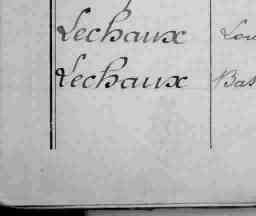 Lechaux Lou
Lechaux Bas